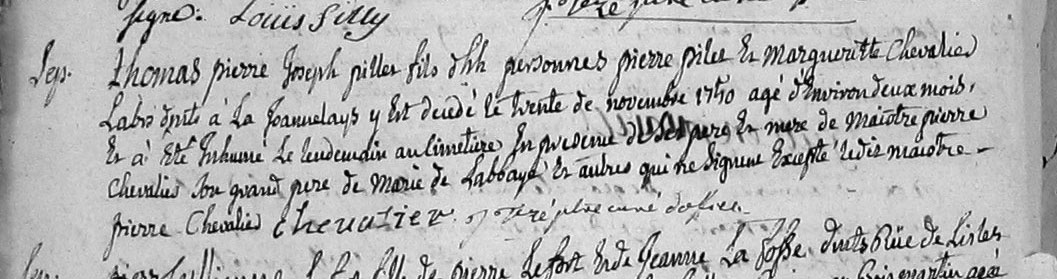 signe: Loüis Gilly
Sep. thomas pierre Joseph pillet fils d'hh personnes pierre pilet Et Margueritte Chevalier
Labrs dnts à La Joannelays y Est decedé le trente de novembre 1750 agé d'Environ deux mois,
Et à Eté Inhumé Le lendemain au Cimetiere En presence de ses pere Et mere de Maistre pierre
Chevalier son grand pere de Marie de Labbaye Et autres qui ne signent Excepté ledit maistre
pierre Chevalier Chevalier
de pierre Lefort Et de Jeanne La fosse dnts Rüe de